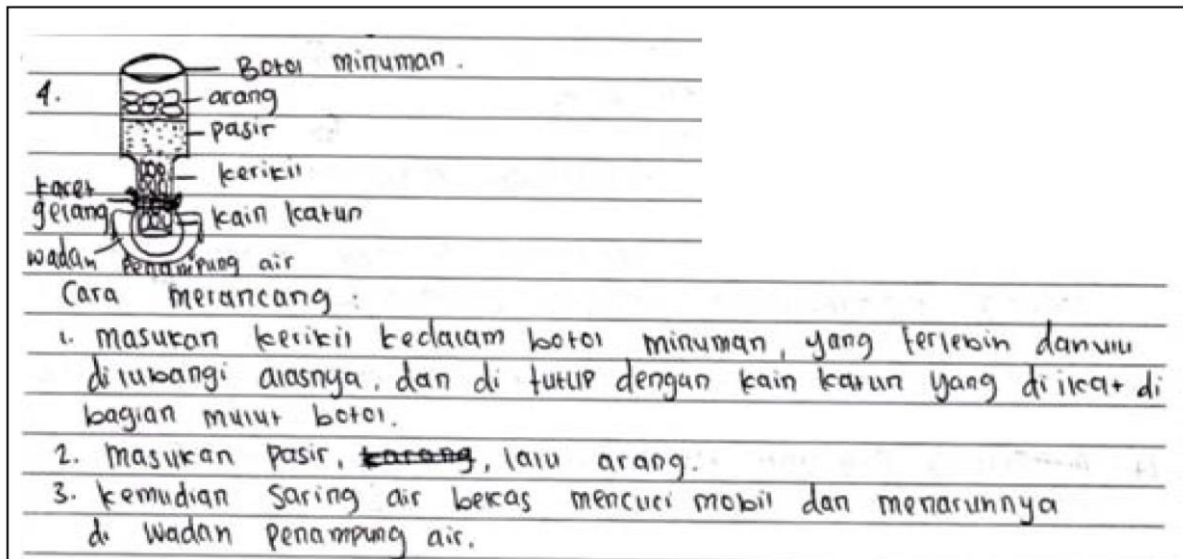 Botol minuman.
4.
arang
pasir
kerikil
karet
gelang
kain katun
wadah penampung air
Cara merancang :
1. masukan kerikil kedalam botol minuman, yang terlebih dahulu
di lubangi alasnya. dan di tutup dengan kain katun yang di ikat di
bagian mulut botol.
2. masukan pasir, karang, lalu arang.
3. kemudian saring air bekas mencuci mobil dan menaruhnya
di wadah penampung air.